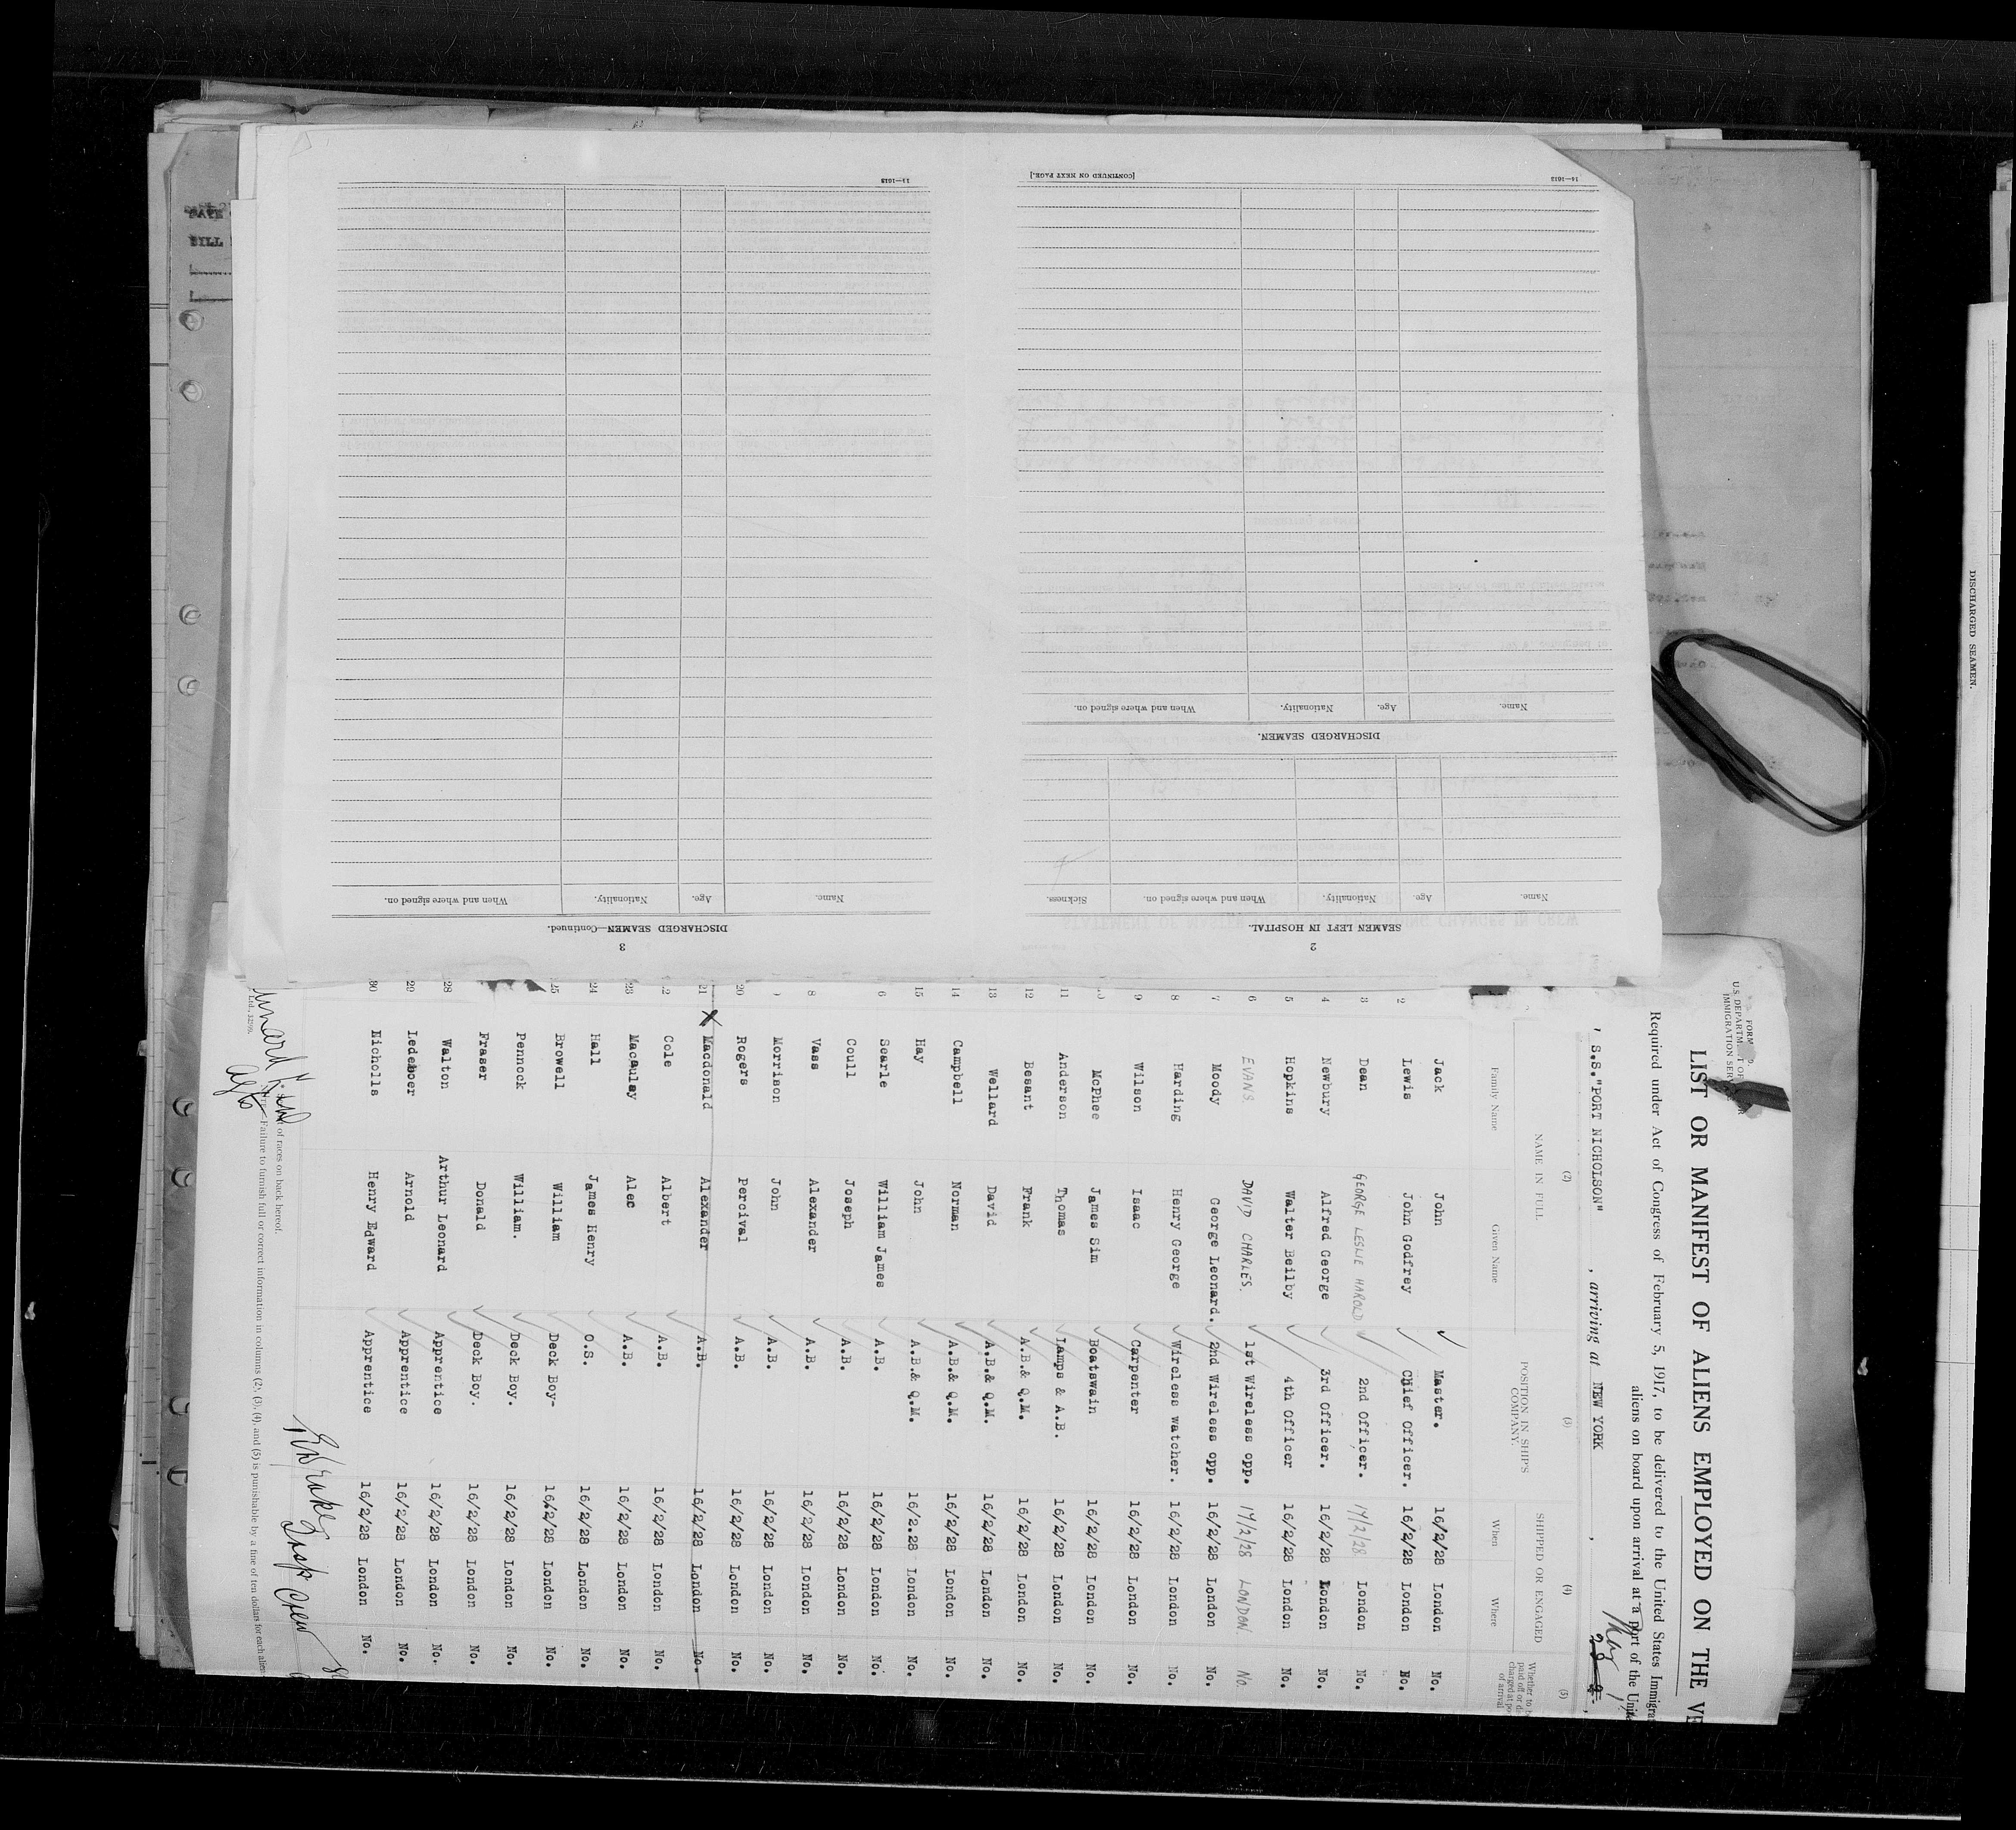 14—1613
[CONTINUED ON NEXT PAGE.]
11—1613
2
SEAMEN LEFT IN HOSPITAL.
Name. Age. Nationality. When and where signed on. Sickness.
DISCHARGED SEAMEN.
Name. Age. Nationality. When and where signed on.
3
DISCHARGED SEAMEN—Continued.
Name. Age. Nationality. When and where signed on.
DISCHARGED SEAMEN.
FORM
U.S. DEPARTM
IMMIGRATION SERV
LIST OR MANIFEST OF ALIENS EMPLOYED ON THE VE
Required under Act of Congress of February 5, 1917, to be delivered to the United States Immigra
aliens on board upon arrival at a port of the Unite
, S.S."PORT NICHOLSON" , arriving at NEW YORK ,
(2) (3) (4) (5)
NAME IN FULL POSITION IN SHIP'S COMPANY. SHIPPED OR ENGAGED Whether to b paid off or di charged at po of arrival
Family Name Given Name When Where
Jack John Master. 16/2/28 London No.
2 Lewis John Godfrey Chief Officer. 16/2/28 London No.
3 Dean GEORGE LESLIE HAROLD 2nd Officer. 17/2/28 London No.
4 Newbury Alfred George 3rd Officer. 16/2/28 London No.
5 Hopkins Walter Beilby 4th Officer 16/2/28 London No.
6 EVANS. DAVID CHARLES. 1st Wireless opp. 17/2/28 LONDON. No.
7 Moody George Leonard. 2nd Wireless opp. 16/2/28 London No.
8 Harding Henry George Wireless watcher. 16/2/28 London No.
9 Wilson Isaac Carpenter 16/2/28 London No.
10 McPhee James Sim Boatswain 16/2/28 London No.
11 Anderson Thomas Lamps & A.B. 16/2/28 London No.
12 Besant Frank A.B.& Q.M. 16/2/28 London No.
13 Wellard David A.B.& Q.M. 16/2/28 London No.
14 Campbell Norman A.B.& Q.M. 16/2/28 London No.
15 Hay John A.B.& Q.M. 16/2.28 London No.
6 Searle William James A.B. 16/2/28 London No.
Coull Joseph A.B. 16/2/28 London No.
8 Vass Alexander A.B. 16/2/28 London No.
Morrison John A.B. 16/2/28 London No.
20 Rogers Percival A.B. 16/2/28 London No.
21 X Macdonald Alexander A.B. 16/2/28 London No.
2 Cole Albert A.B. 16/2/28 London No.
23 Macaulay Alec A.B. 16/2/28 London No.
24 Hall James Henry O.S. 16/2/28 London No.
25 Browell William Deck Boy- 16/2/28 London No.
Pennock William. Deck Boy. 16/2/28 London No.
Fraser Donald Deck Boy. 16/2/28 London No.
28 Walton Arthur Leonard Apprentice 16/2/28 London No.
29 Ledeboer Arnold Apprentice 16/2/28 London No.
30 Nicholls Henry Edward Apprentice 16/2/28 London No.
of races on back hereof.
Failure to furnish full or correct information in columns (2), (3), (4), and (5) is punishable by a fine of ten dollars for each alien